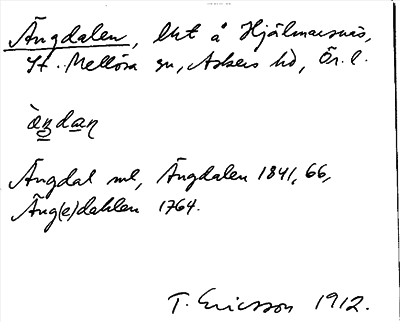 Ängdalen, lht å Hjälmarsnäs,
St. Mellösa sn, Askers hd, Ör. l.
àŋdaɳ
Ängdal ml, Ängdalen 1841, 66,
Äng(e)dahlen 1764.
T. Ericsson 1912.